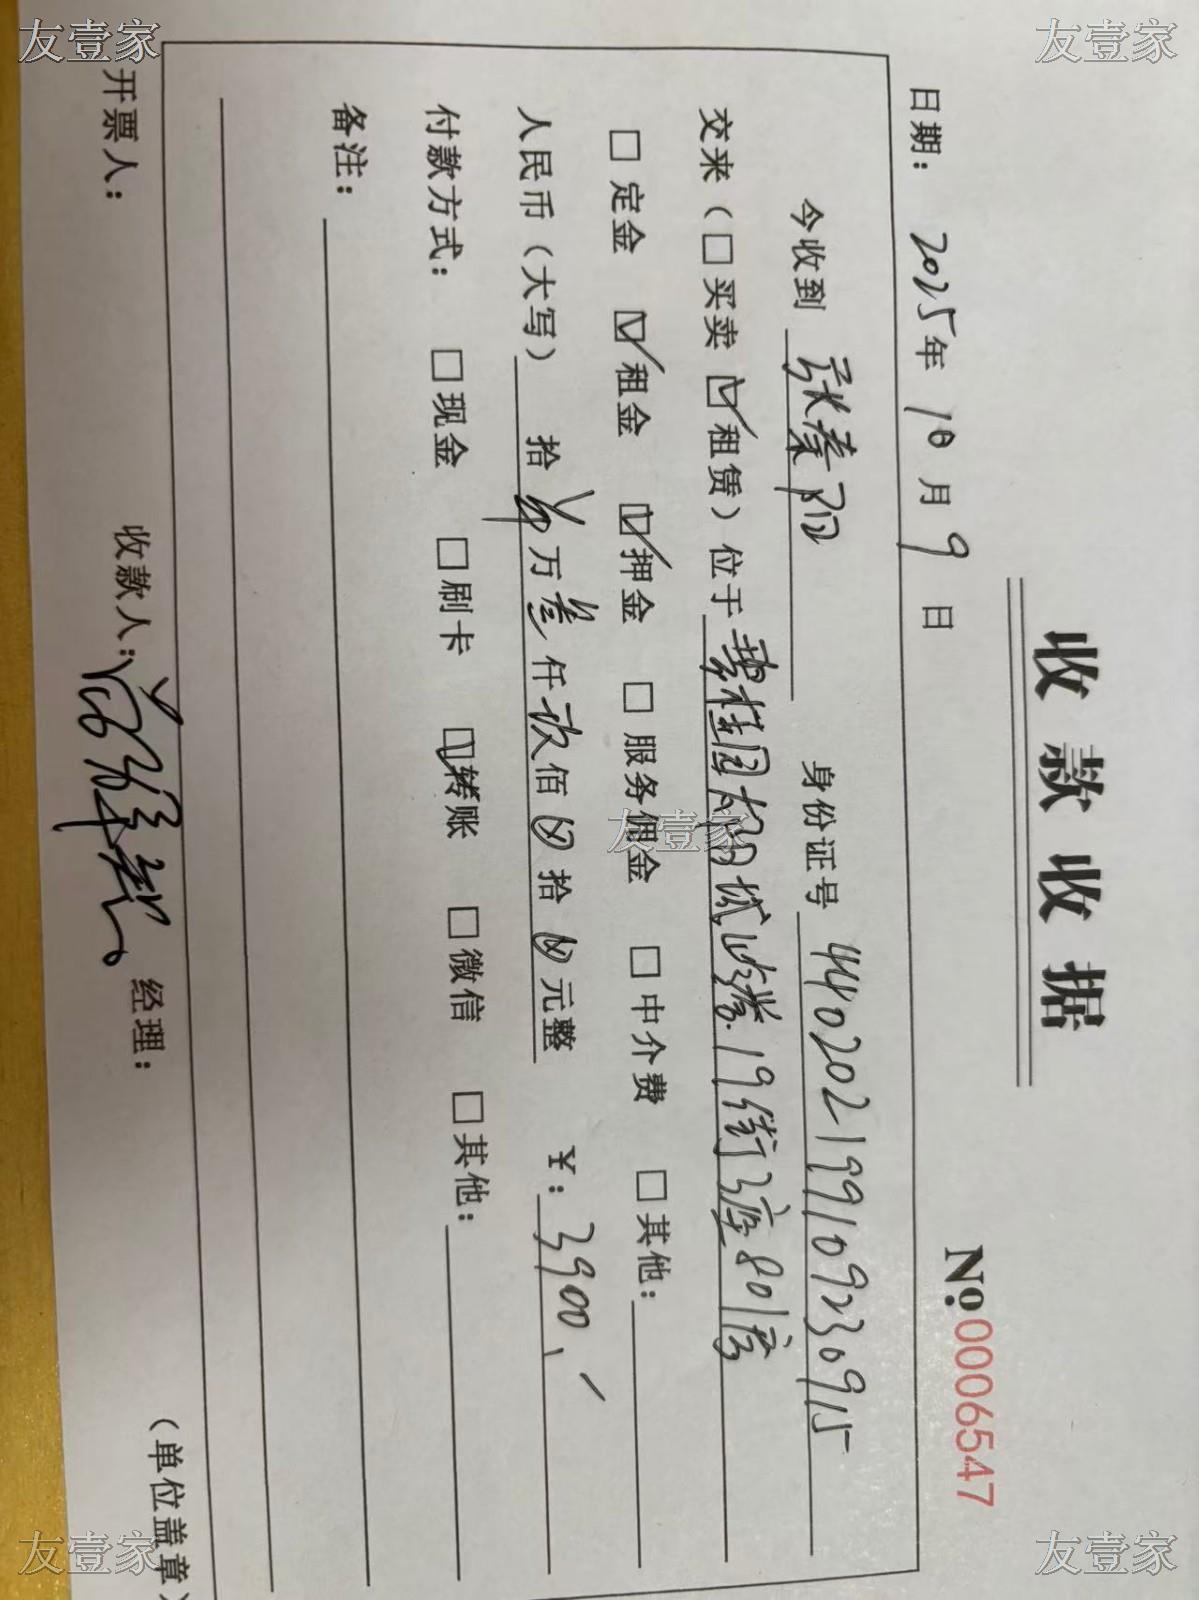 友壹家
友壹家
收款收据
No.0006547
日期： 2025年 10月 9 日
今收到 张秦阳 身份证号 440202199109230915
交来（□买卖 ☑租赁）位于 碧桂园 城 19街 座801房
□ 定金 ☑租金 ☑押金 □ 服务佣金 □ 中介费 □ 其他：
人民币（大写） 拾 万叁仟玖佰 拾 元整 ￥： 3900.
付款方式： □现金 □刷卡 ☑转账 □微信 □其他：
备注：
开票人： 收款人： 经理： （单位盖章）
友壹家
友壹家
友壹家